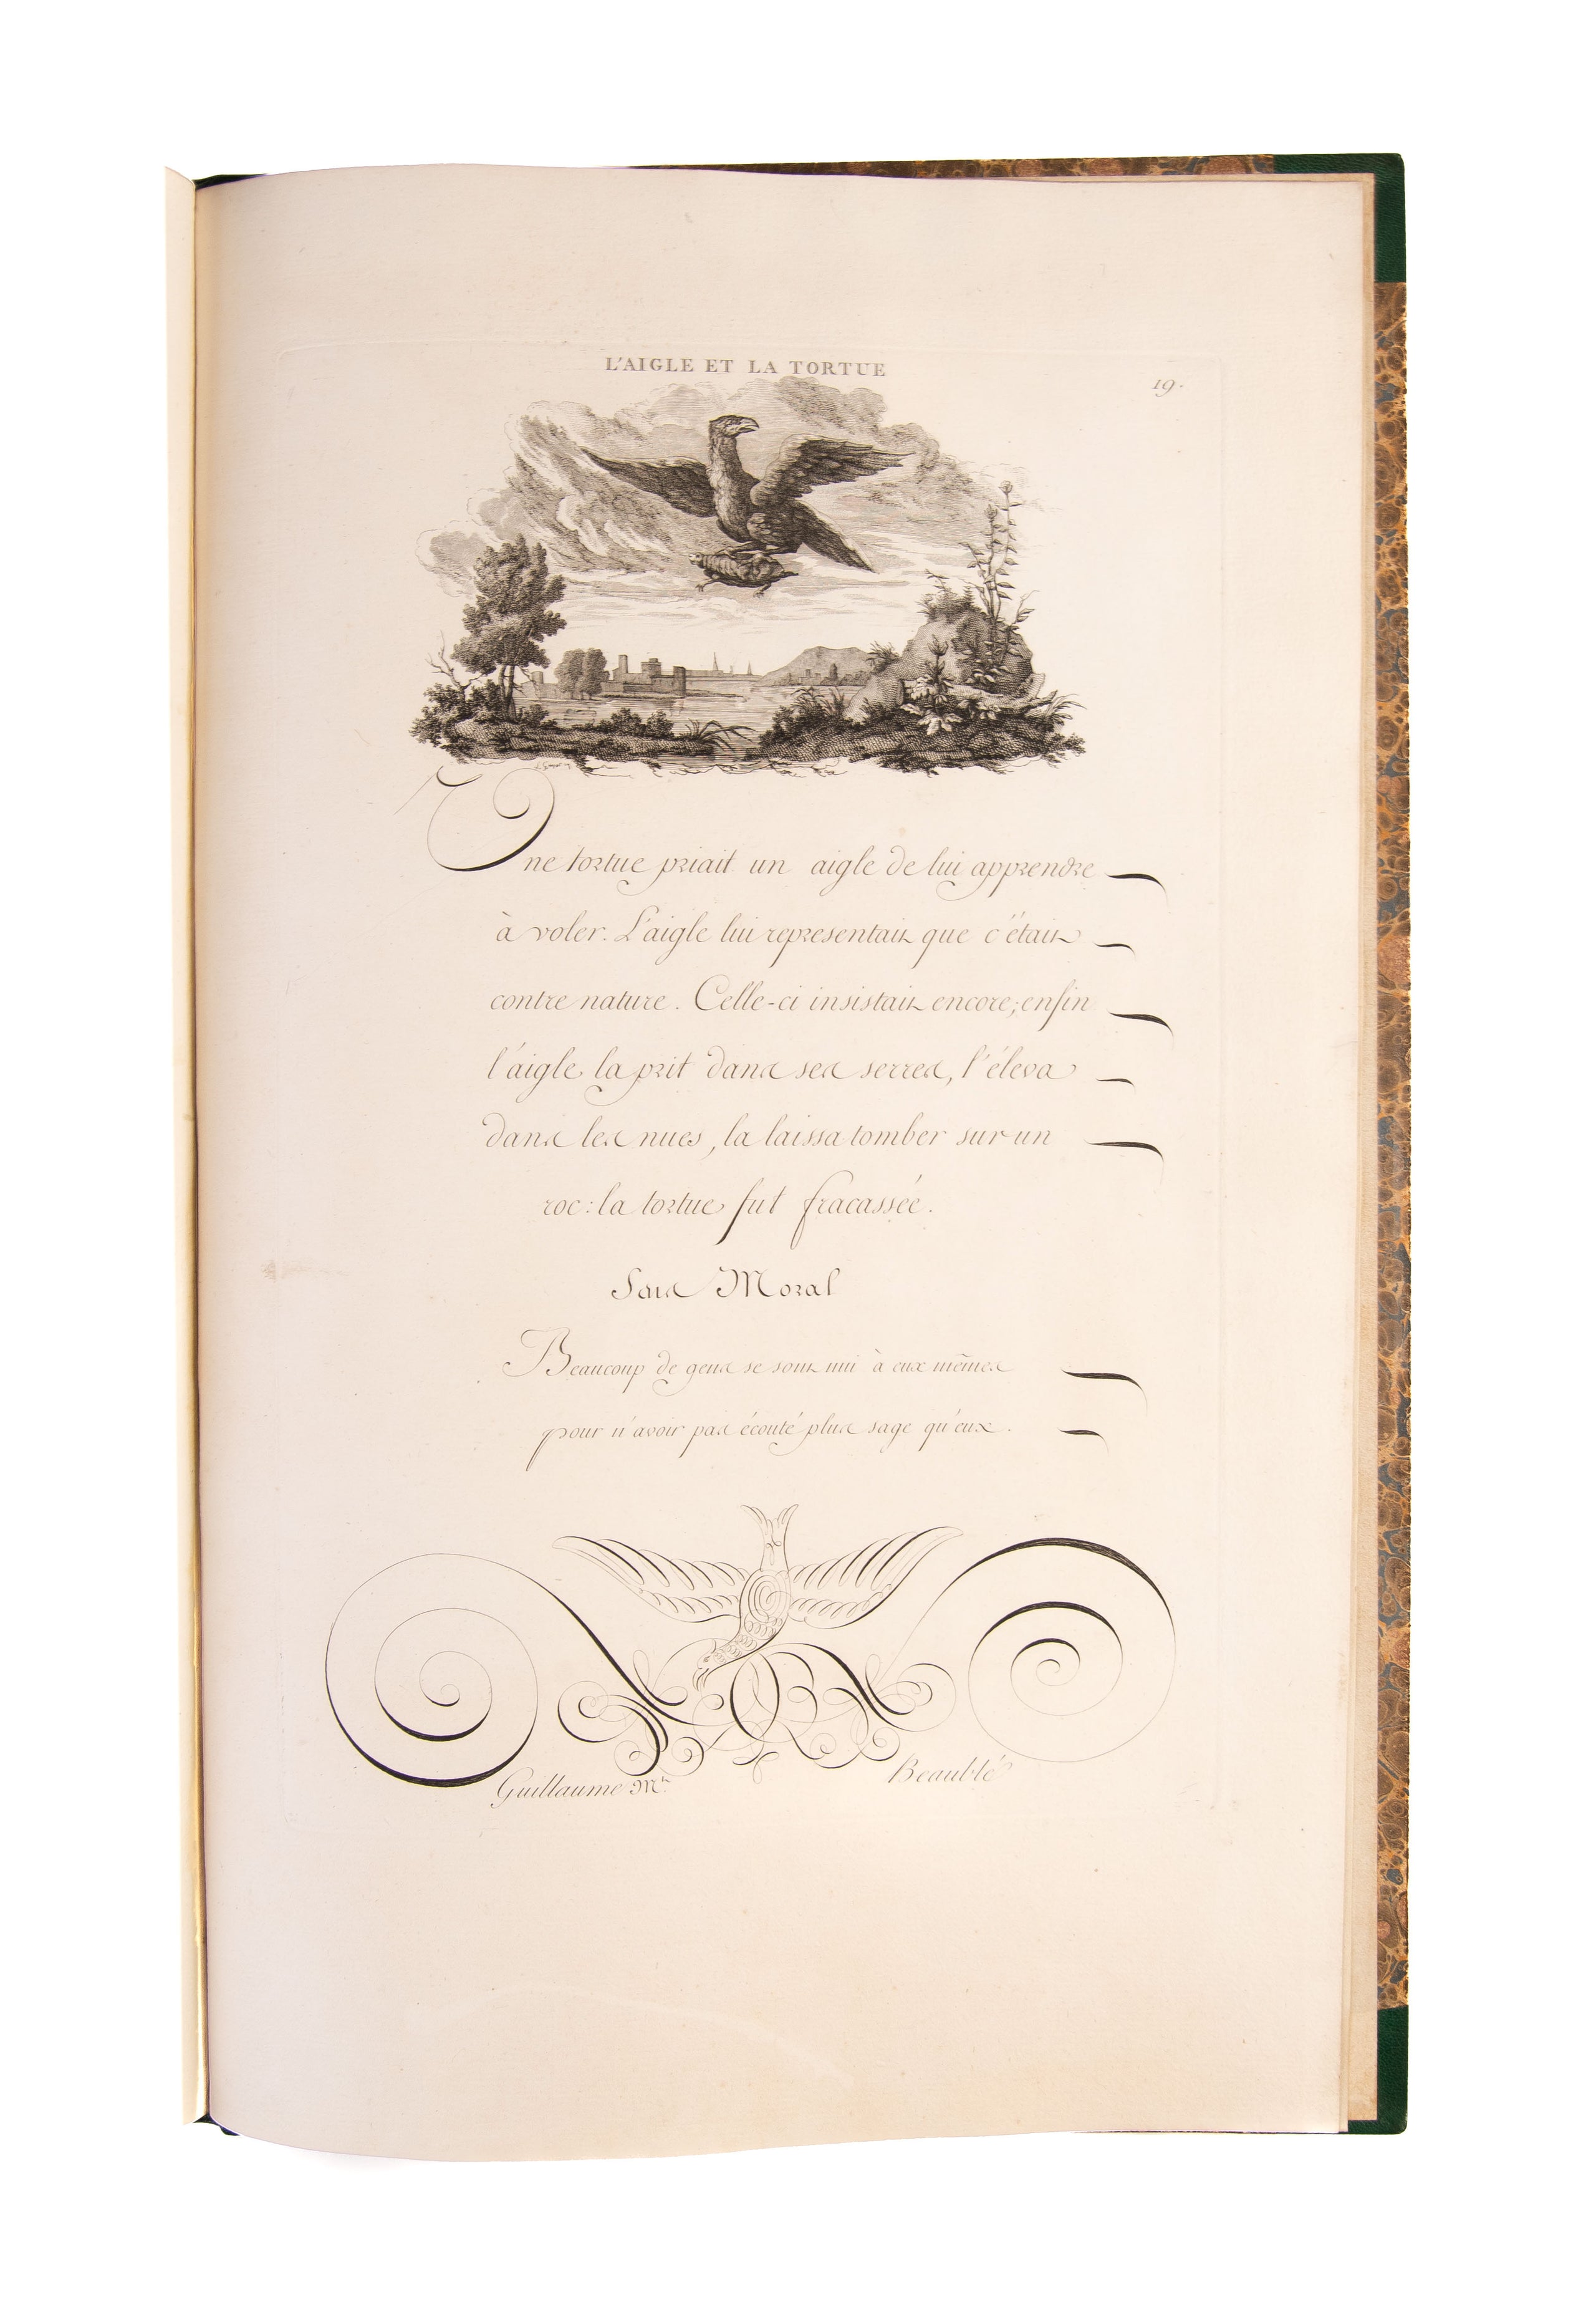 L'AIGLE ET LA TORTUE
19.
Une tortue priait un aigle de lui apprendre
à voler. L'aigle lui representait que c'était
contre nature. Celle-ci insistait encore; enfin
l'aigle la prit dans ses serres, l'éleva
dans les nues, la laissa tomber sur un
roc: la tortue fut fracassée.
Sens Moral
Beaucoup de gens se sont nui à eux mêmes
pour n'avoir pas écouté plus sage qu'eux.
Guillaume
Beaublé